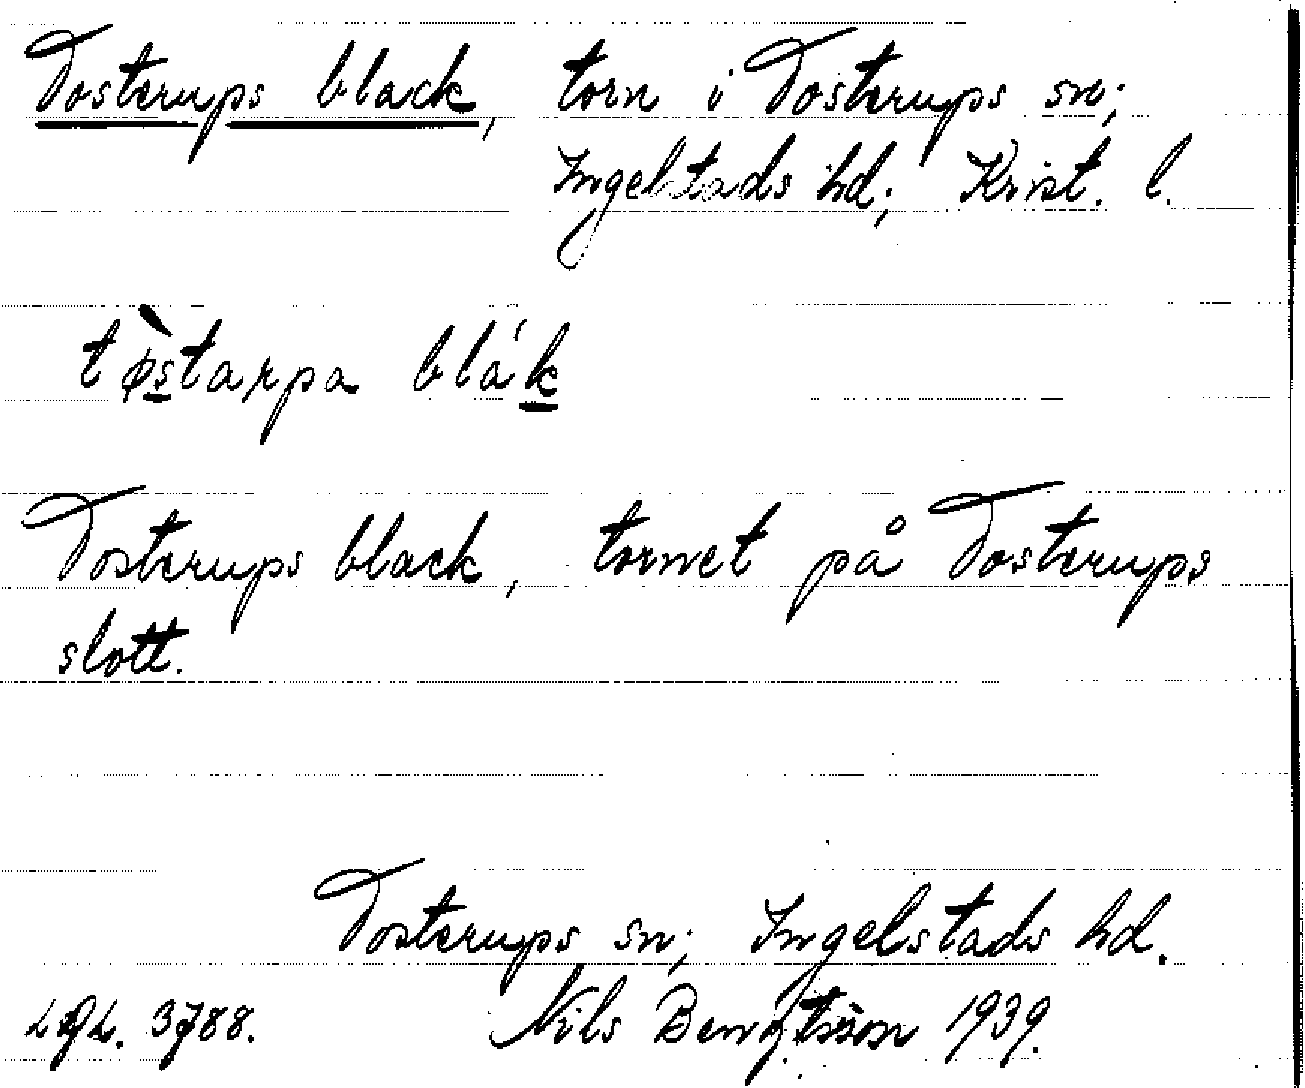 Tosterups black, torn i Tosterups sn;
Ingelstads hd; Krist. l.
tø̀starpa blák
Tosterups black, tornet på Tosterups
slott.
Tosterups sn; Ingelstads hd.
3788. Nils Bengtsson 1939.